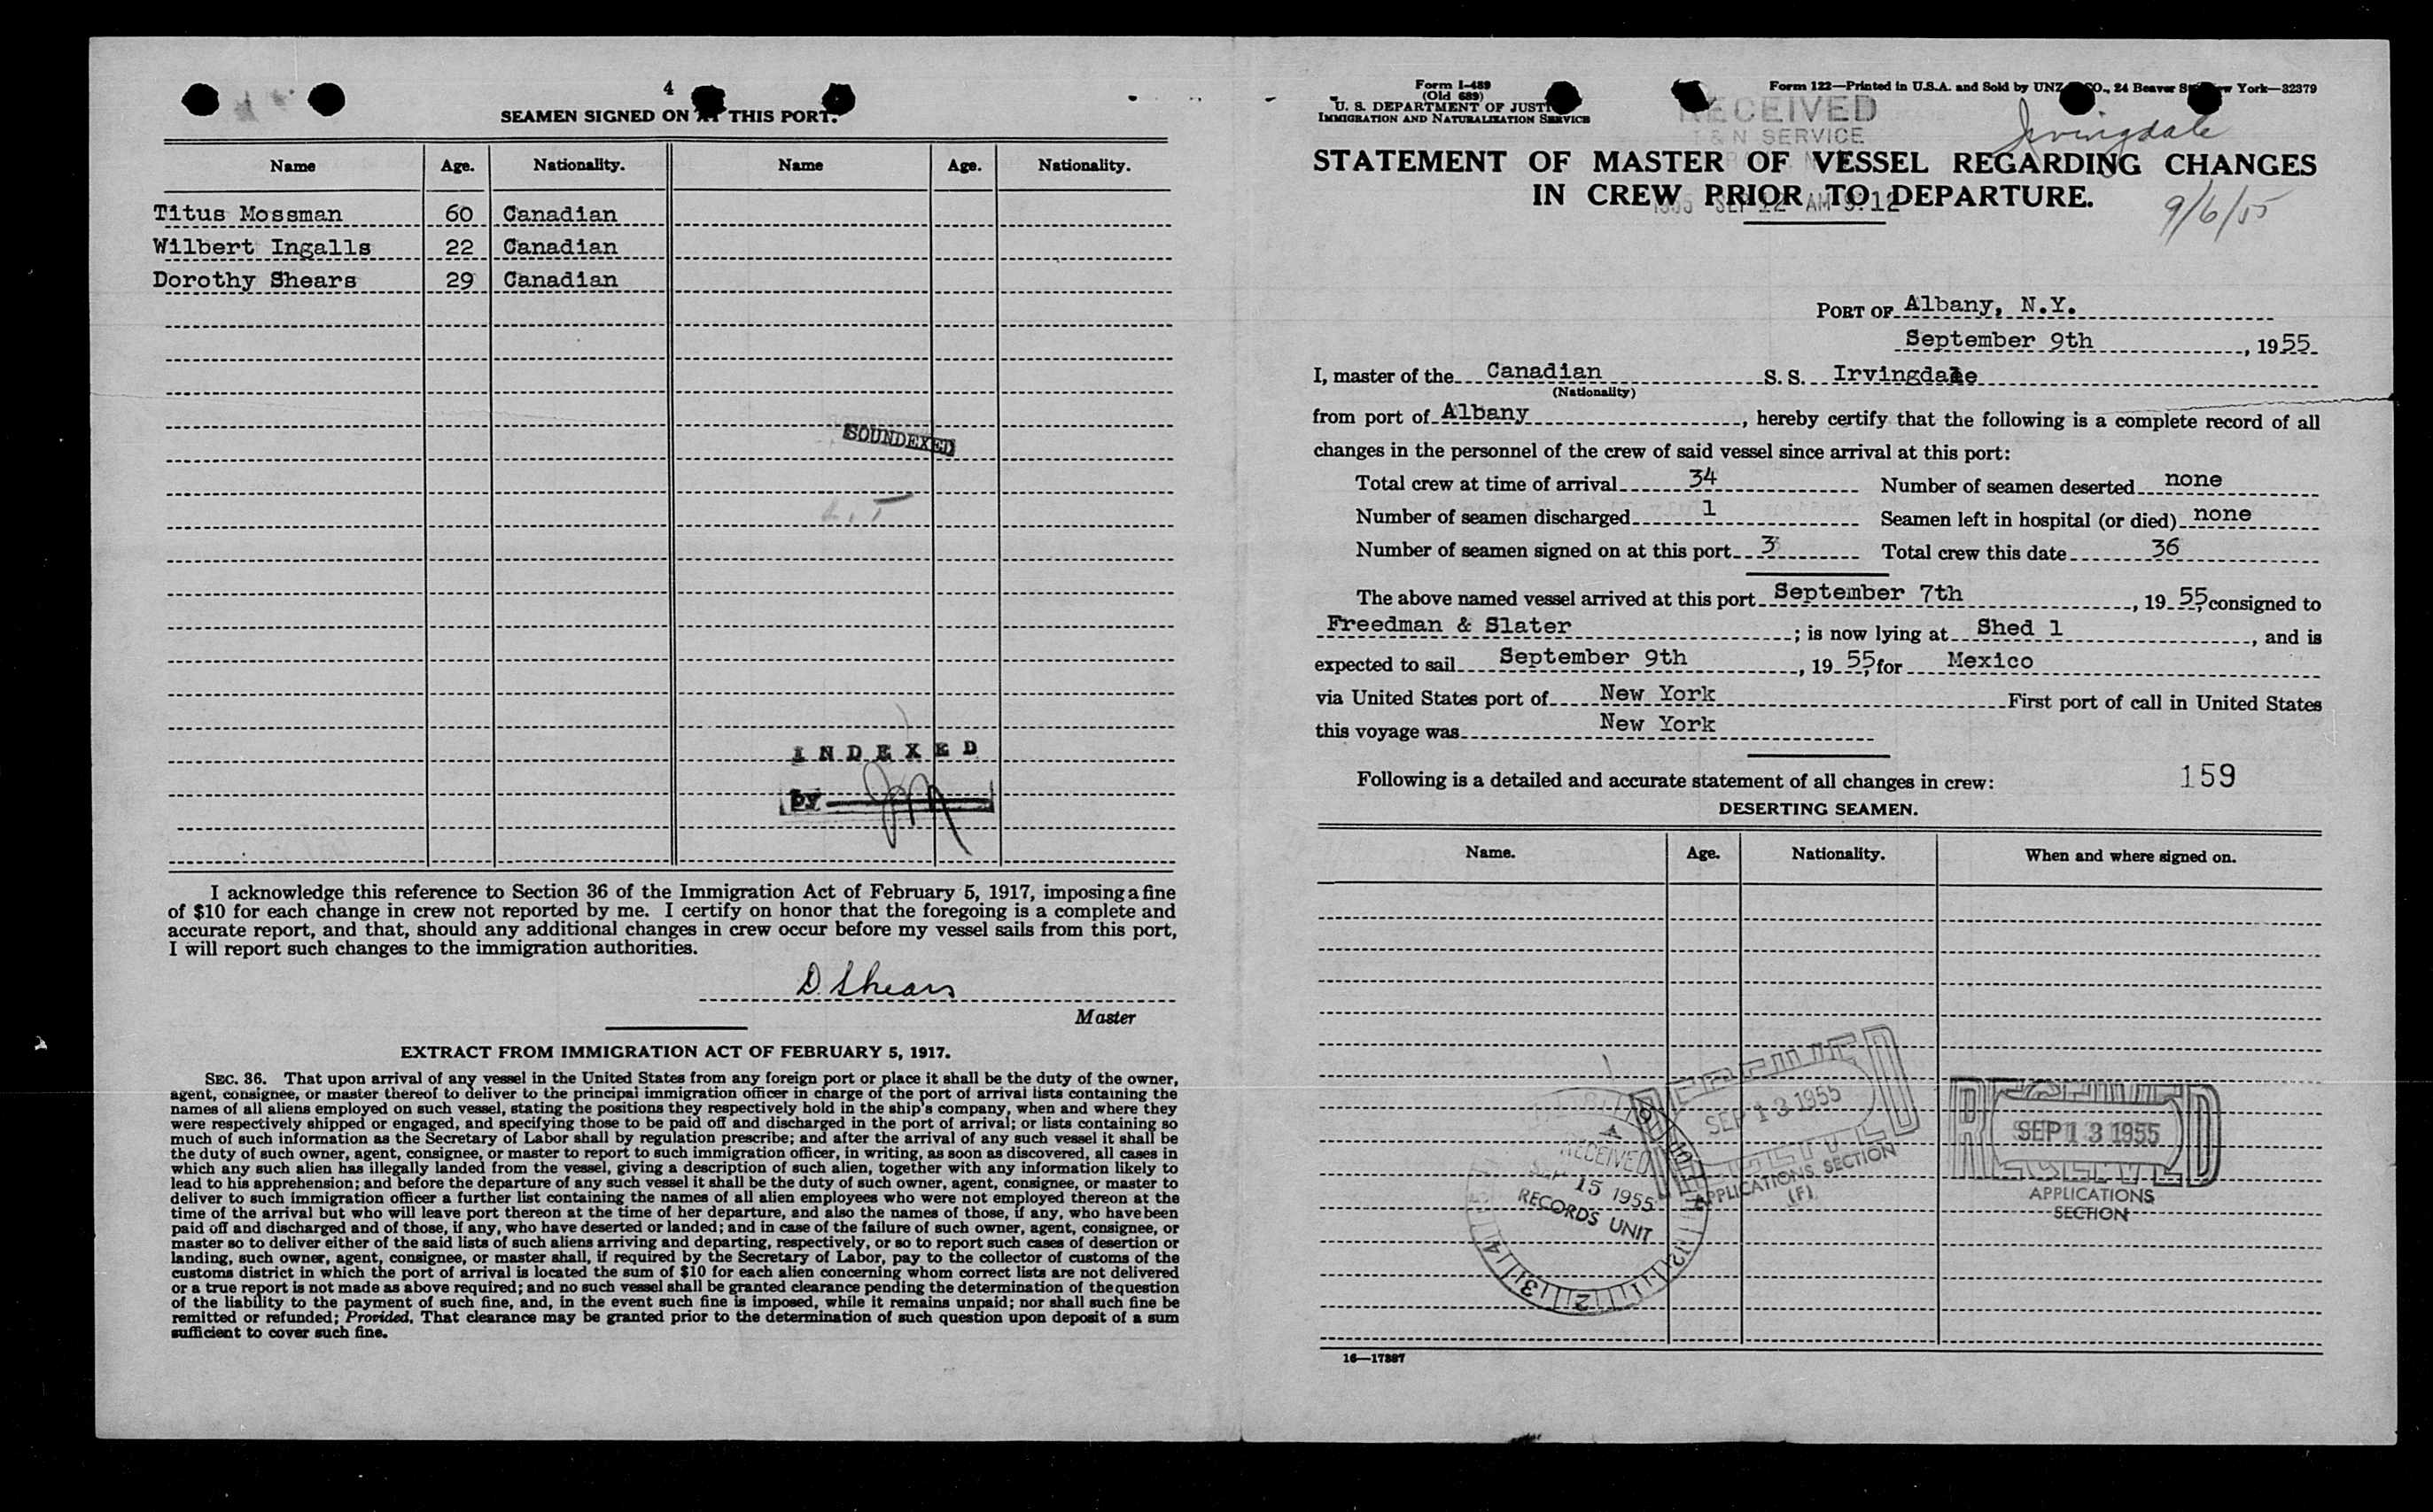 4
SEAMEN SIGNED ON AT THIS PORT.
Name Age. Nationality. Name Age. Nationality.
Titus Mossman 60 Canadian
Wilbert Ingalls 22 Canadian
Dorothy Shears 29 Canadian
SOUNDEXED
INDEXED
by
I acknowledge this reference to Section 36 of the Immigration Act of February 5, 1917, imposing a fine
of $10 for each change in crew not reported by me. I certify on honor that the foregoing is a complete and
accurate report, and that, should any additional changes in crew occur before my vessel sails from this port,
I will report such changes to the immigration authorities.
D. Shears
Master
EXTRACT FROM IMMIGRATION ACT OF FEBRUARY 5, 1917.
SEC. 36. That upon arrival of any vessel in the United States from any foreign port or place it shall be the duty of the owner,
agent, consignee, or master thereof to deliver to the principal immigration officer in charge of the port of arrival lists containing the
names of all aliens employed on such vessel, stating the positions they respectively hold in the ship's company, when and where they
were respectively shipped or engaged, and specifying those to be paid off and discharged in the port of arrival; or lists containing so
much of such information as the Secretary of Labor shall by regulation prescribe; and after the arrival of any such vessel it shall be
the duty of such owner, agent, consignee, or master to report to such immigration officer, in writing, as soon as discovered, all cases in
which any such alien has illegally landed from the vessel, giving a description of such alien, together with any information likely to
lead to his apprehension; and before the departure of any such vessel it shall be the duty of such owner, agent, consignee, or master to
deliver to such immigration officer a further list containing the names of all alien employees who were not employed thereon at the
time of the arrival but who will leave port thereon at the time of her departure, and also the names of those, if any, who have been
paid off and discharged and of those, if any, who have deserted or landed; and in case of the failure of such owner, agent, consignee, or
master so to deliver either of the said lists of such aliens arriving and departing, respectively, or so to report such cases of desertion or
landing, such owner, agent, consignee, or master shall, if required by the Secretary of Labor, pay to the collector of customs of the
customs district in which the port of arrival is located the sum of $10 for each alien concerning whom correct lists are not delivered
or a true report is not made as above required; and no such vessel shall be granted clearance pending the determination of the question
of the liability to the payment of such fine, and, in the event such fine is imposed, while it remains unpaid; nor shall such fine be
remitted or refunded; Provided, That clearance may be granted prior to the determination of such question upon deposit of a sum
sufficient to cover such fine.
Form I-489
(Old 689)
U. S. DEPARTMENT OF JUSTICE
IMMIGRATION AND NATURALIZATION SERVICE
Form 122—Printed in U.S.A. and Sold by UNZ & CO., 24 Beaver St., New York—32379
RECEIVED
I & N SERVICE
Irvingdale
STATEMENT OF MASTER OF VESSEL REGARDING CHANGES
IN CREW PRIOR TO DEPARTURE.
1955 SEP 12 AM 9:12
9/6/55
PORT OF Albany, N.Y.
September 9th, 1955
I, master of the Canadian S. S. Irvingdale
(Nationality)
from port of Albany, hereby certify that the following is a complete record of all
changes in the personnel of the crew of said vessel since arrival at this port:
Total crew at time of arrival 34 Number of seamen deserted none
Number of seamen discharged 1 Seamen left in hospital (or died) none
Number of seamen signed on at this port 3 Total crew this date 36
The above named vessel arrived at this port September 7th, 1955, consigned to
Freedman & Slater; is now lying at Shed 1, and is
expected to sail September 9th, 1955, for Mexico
via United States port of New York First port of call in United States
this voyage was New York
Following is a detailed and accurate statement of all changes in crew: 159
DESERTING SEAMEN.
Name. Age. Nationality. When and where signed on.
RECEIVED
SEP 13 1955
APPLICATIONS SECTION
(F)
RECEIVED
SEP 13 1955
APPLICATIONS
SECTION
RECEIVED
SEP 15 1955
RECORDS UNIT
16—17387